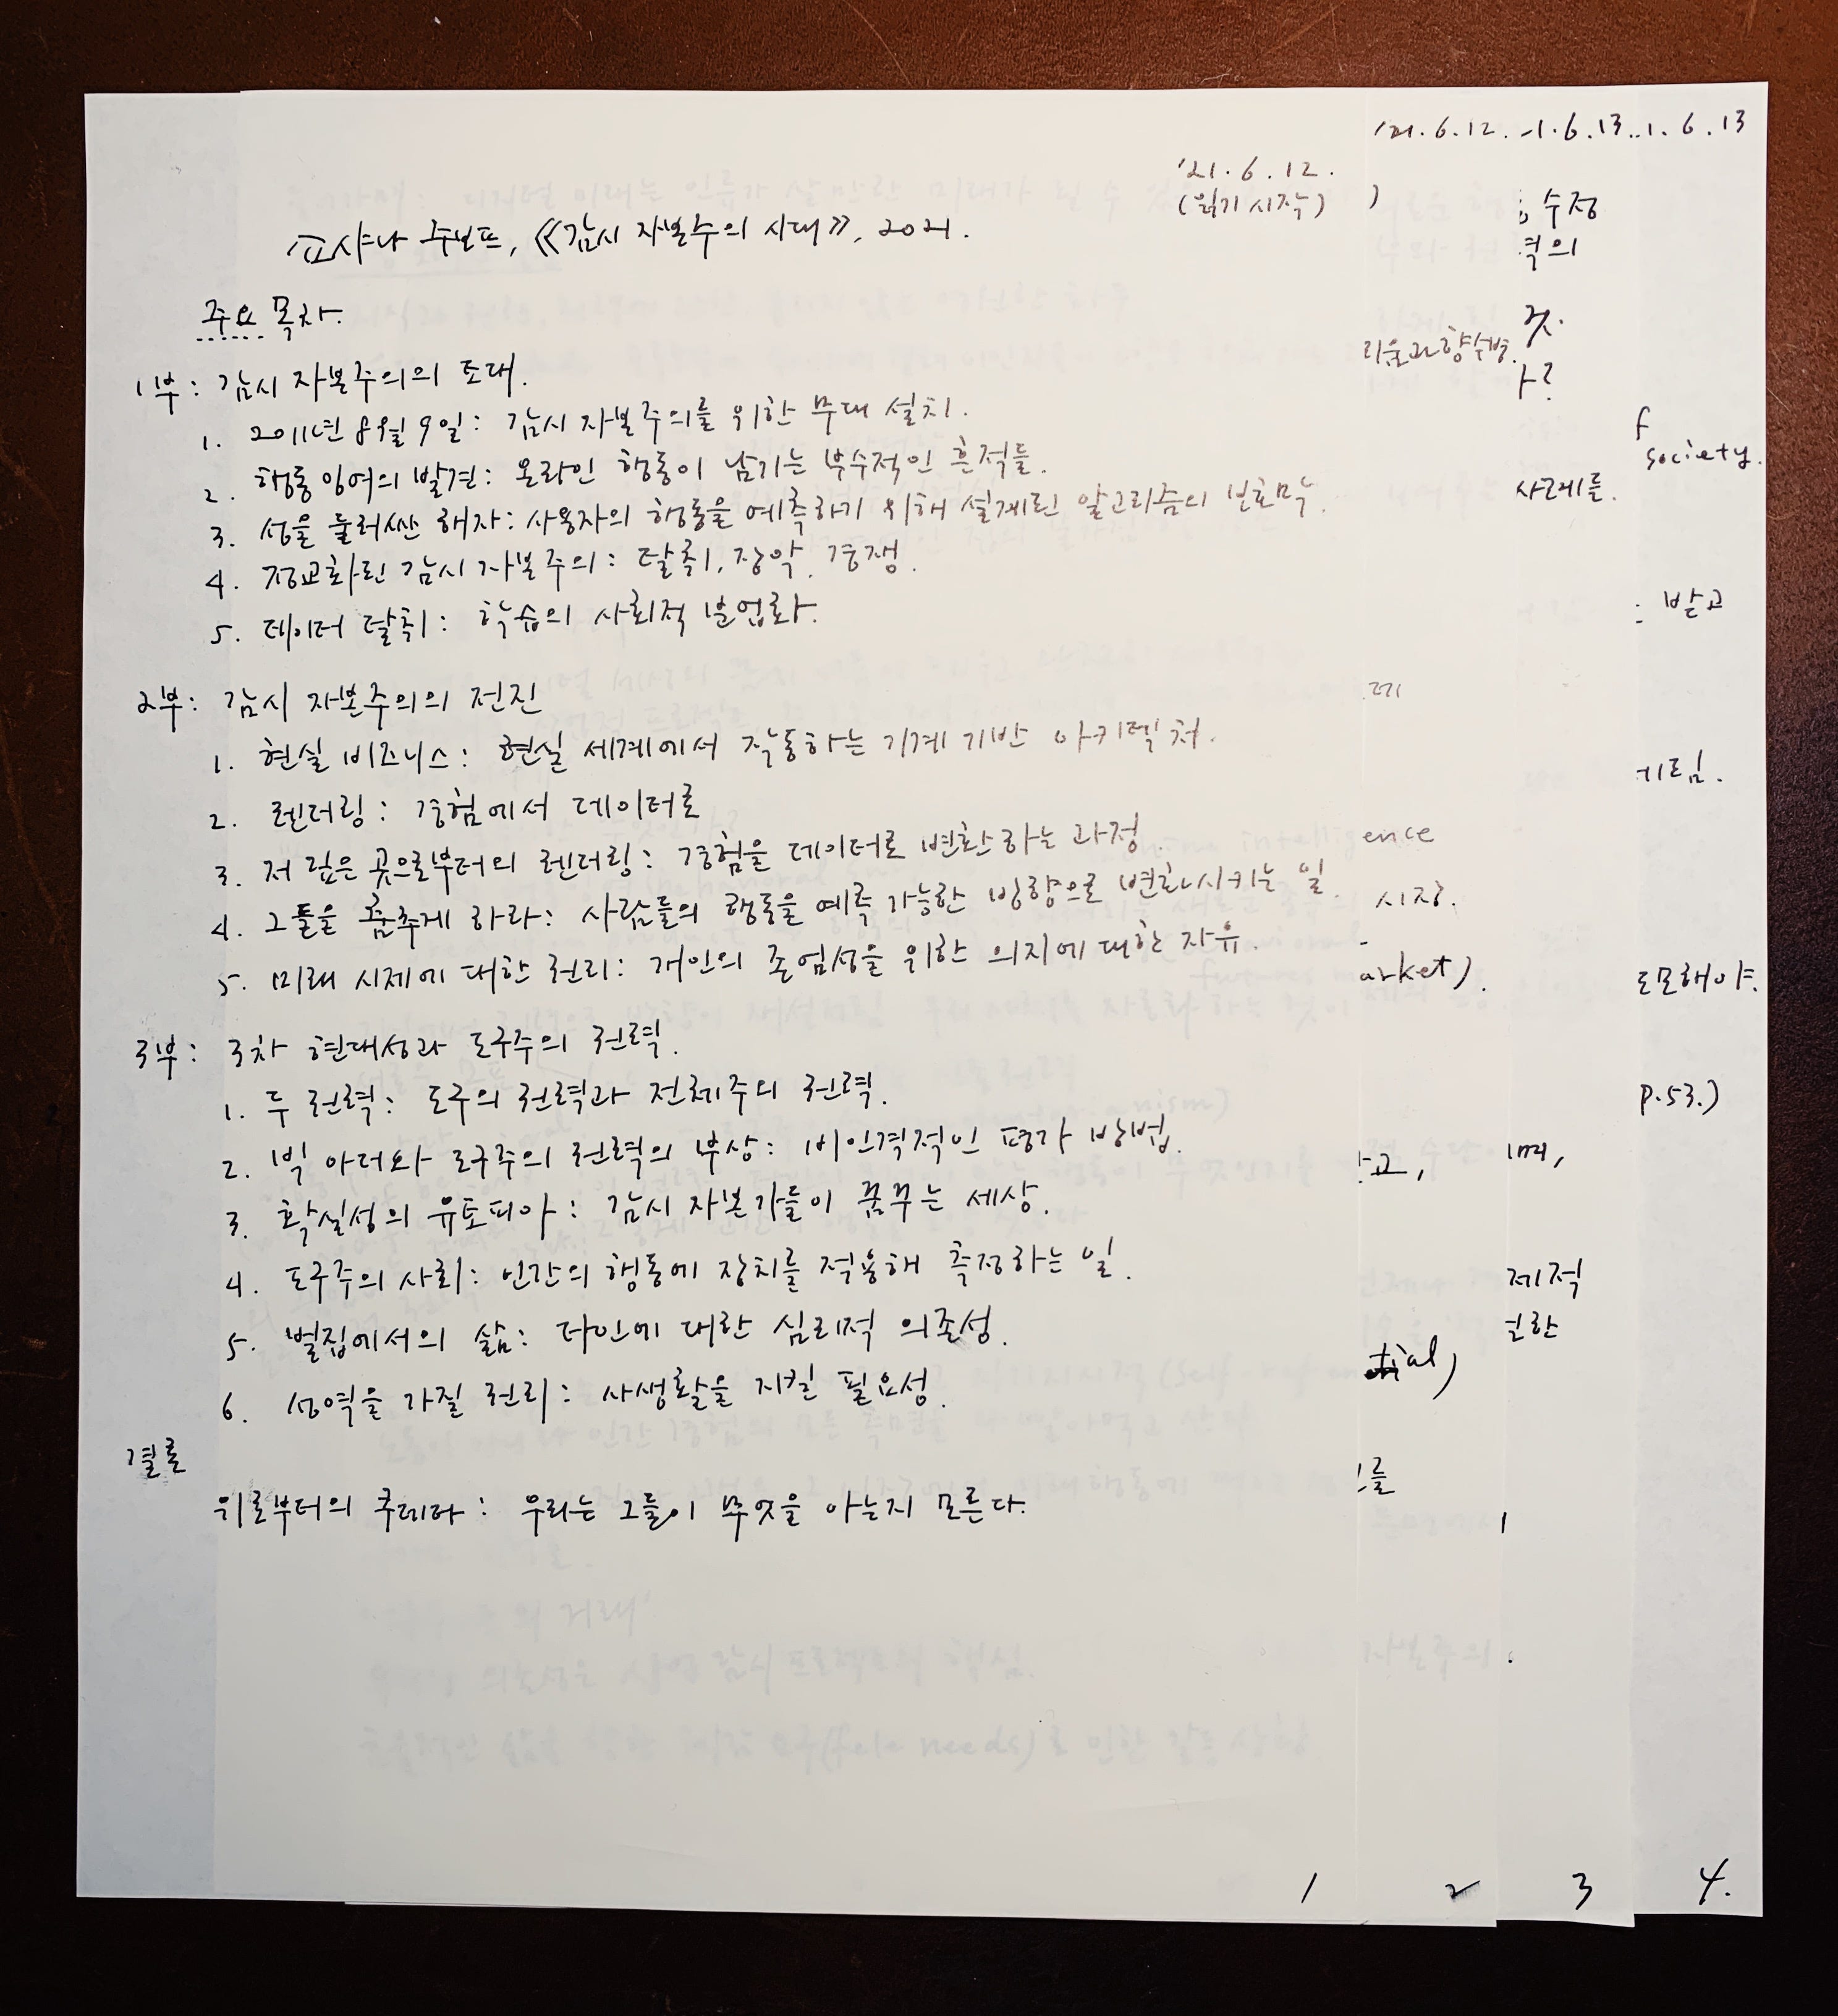 '21.6.12.
(읽기 시작)
쇼샤나 주보프, 《감시 자본주의 시대》, 2021.
주요 목차.
1부: 감시 자본주의의 토대.
1. 2011년 8월 9일: 감시 자본주의를 위한 무대 설치.
2. 행동 잉여의 발견: 온라인 행동이 남기는 부수적인 흔적들.
3. 성을 둘러싼 해자: 사용자의 행동을 예측하기 위해 설계된 알고리즘의 보호막.
4. 정교화된 감시 자본주의: 탈취, 장악, 경쟁.
5. 데이터 탈취: 학습의 사회적 분업화.
2부: 감시 자본주의의 전진
1. 현실 비즈니스: 현실 세계에서 작동하는 기계 기반 아키텍처.
2. 렌더링: 경험에서 데이터로
3. 저 깊은 곳으로부터의 렌더링: 경험을 데이터로 변환하는 과정.
4. 그들을 춤추게 하라: 사람들의 행동을 예측 가능한 방향으로 변화시키는 일.
5. 미래 시제에 대한 권리: 개인의 존엄성을 위한 의지에 대한 자유.
3부: 3차 현대성과 도구주의 권력.
1. 두 권력: 도구의 권력과 전체주의 권력.
2. 빅 아더와 도구주의 권력의 부상: 비인격적인 평가 방법.
3. 확실성의 유토피아: 감시 자본가들이 꿈꾸는 세상.
4. 도구주의 사회: 인간의 행동에 장치를 적용해 측정하는 일.
5. 벌집에서의 삶: 타인에 대한 심리적 의존성.
6. 성역을 가질 권리: 사생활을 지킬 필요성.
결론
위로부터의 쿠데타: 우리는 그들이 무엇을 아는지 모른다.
1
'21.6.12.
)
리움과 향수병.
데
ence
시장.
arket).
고,
tial)
를
2
1.6.13
수정
력의
것.
사례를.
며,
제적
한
3
1.6.13
f
society.
받고
림.
도모해야.
p.53.)
4.